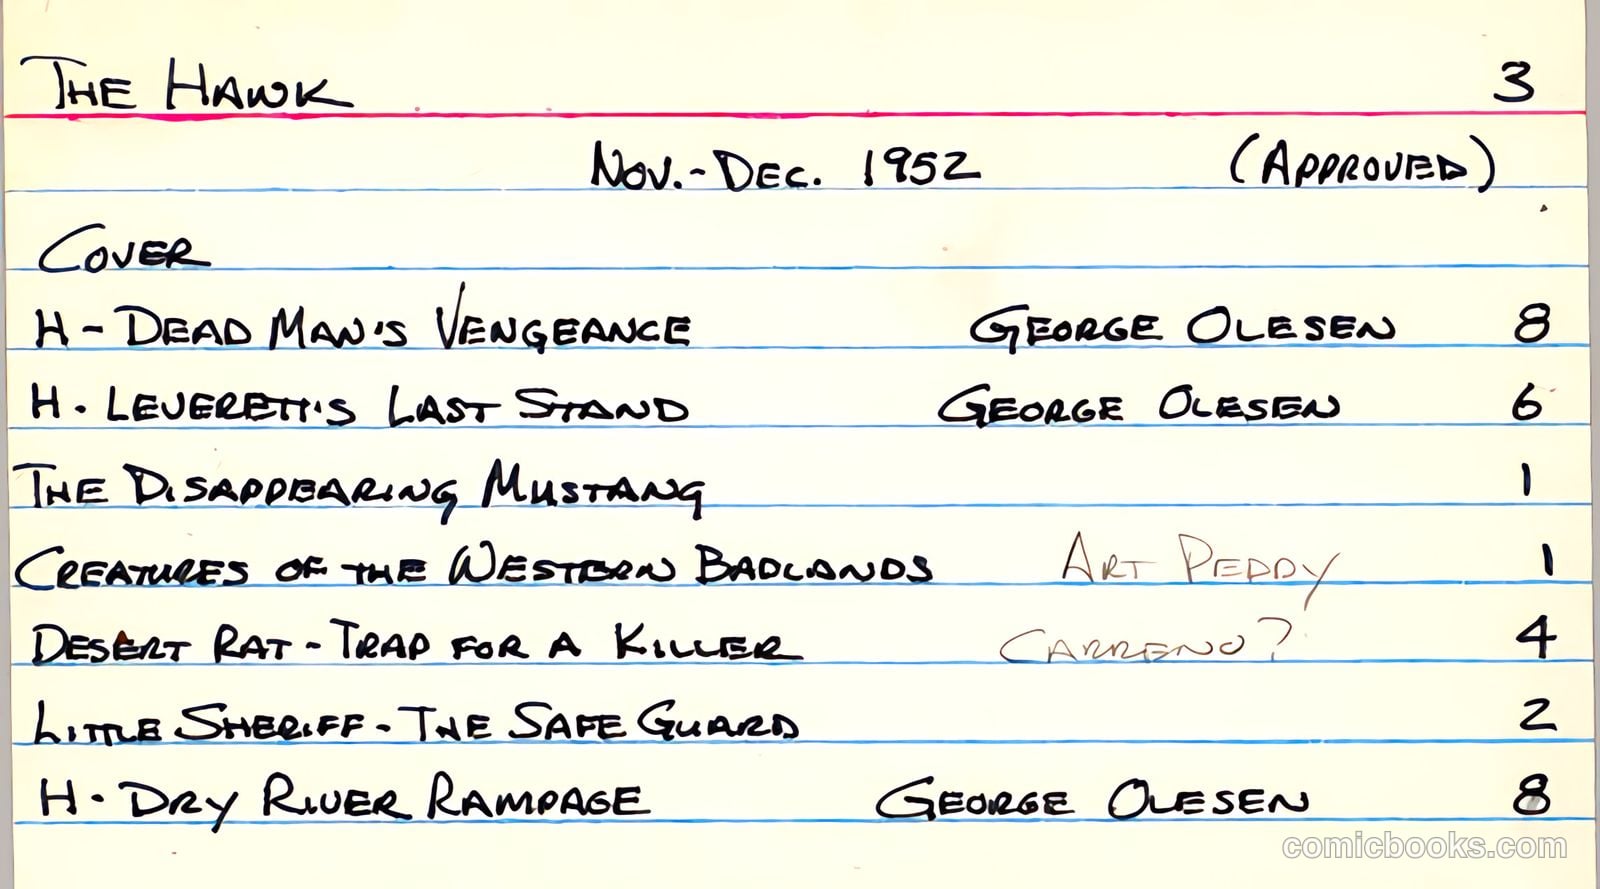 THE HAWK 3
NOV.-DEC. 1952 (APPROVED)
COVER
H - DEAD MAN'S VENGEANCE GEORGE OLESEN 8
H. LEVERETT'S LAST STAND GEORGE OLESEN 6
THE DISAPPEARING MUSTANG 1
CREATURES OF THE WESTERN BADLANDS ART PEDDY 1
DESERT RAT - TRAP FOR A KILLER CARRENO? 4
LITTLE SHERIFF - THE SAFE GUARD 2
H. DRY RIVER RAMPAGE GEORGE OLESEN 8
comicbooks.com